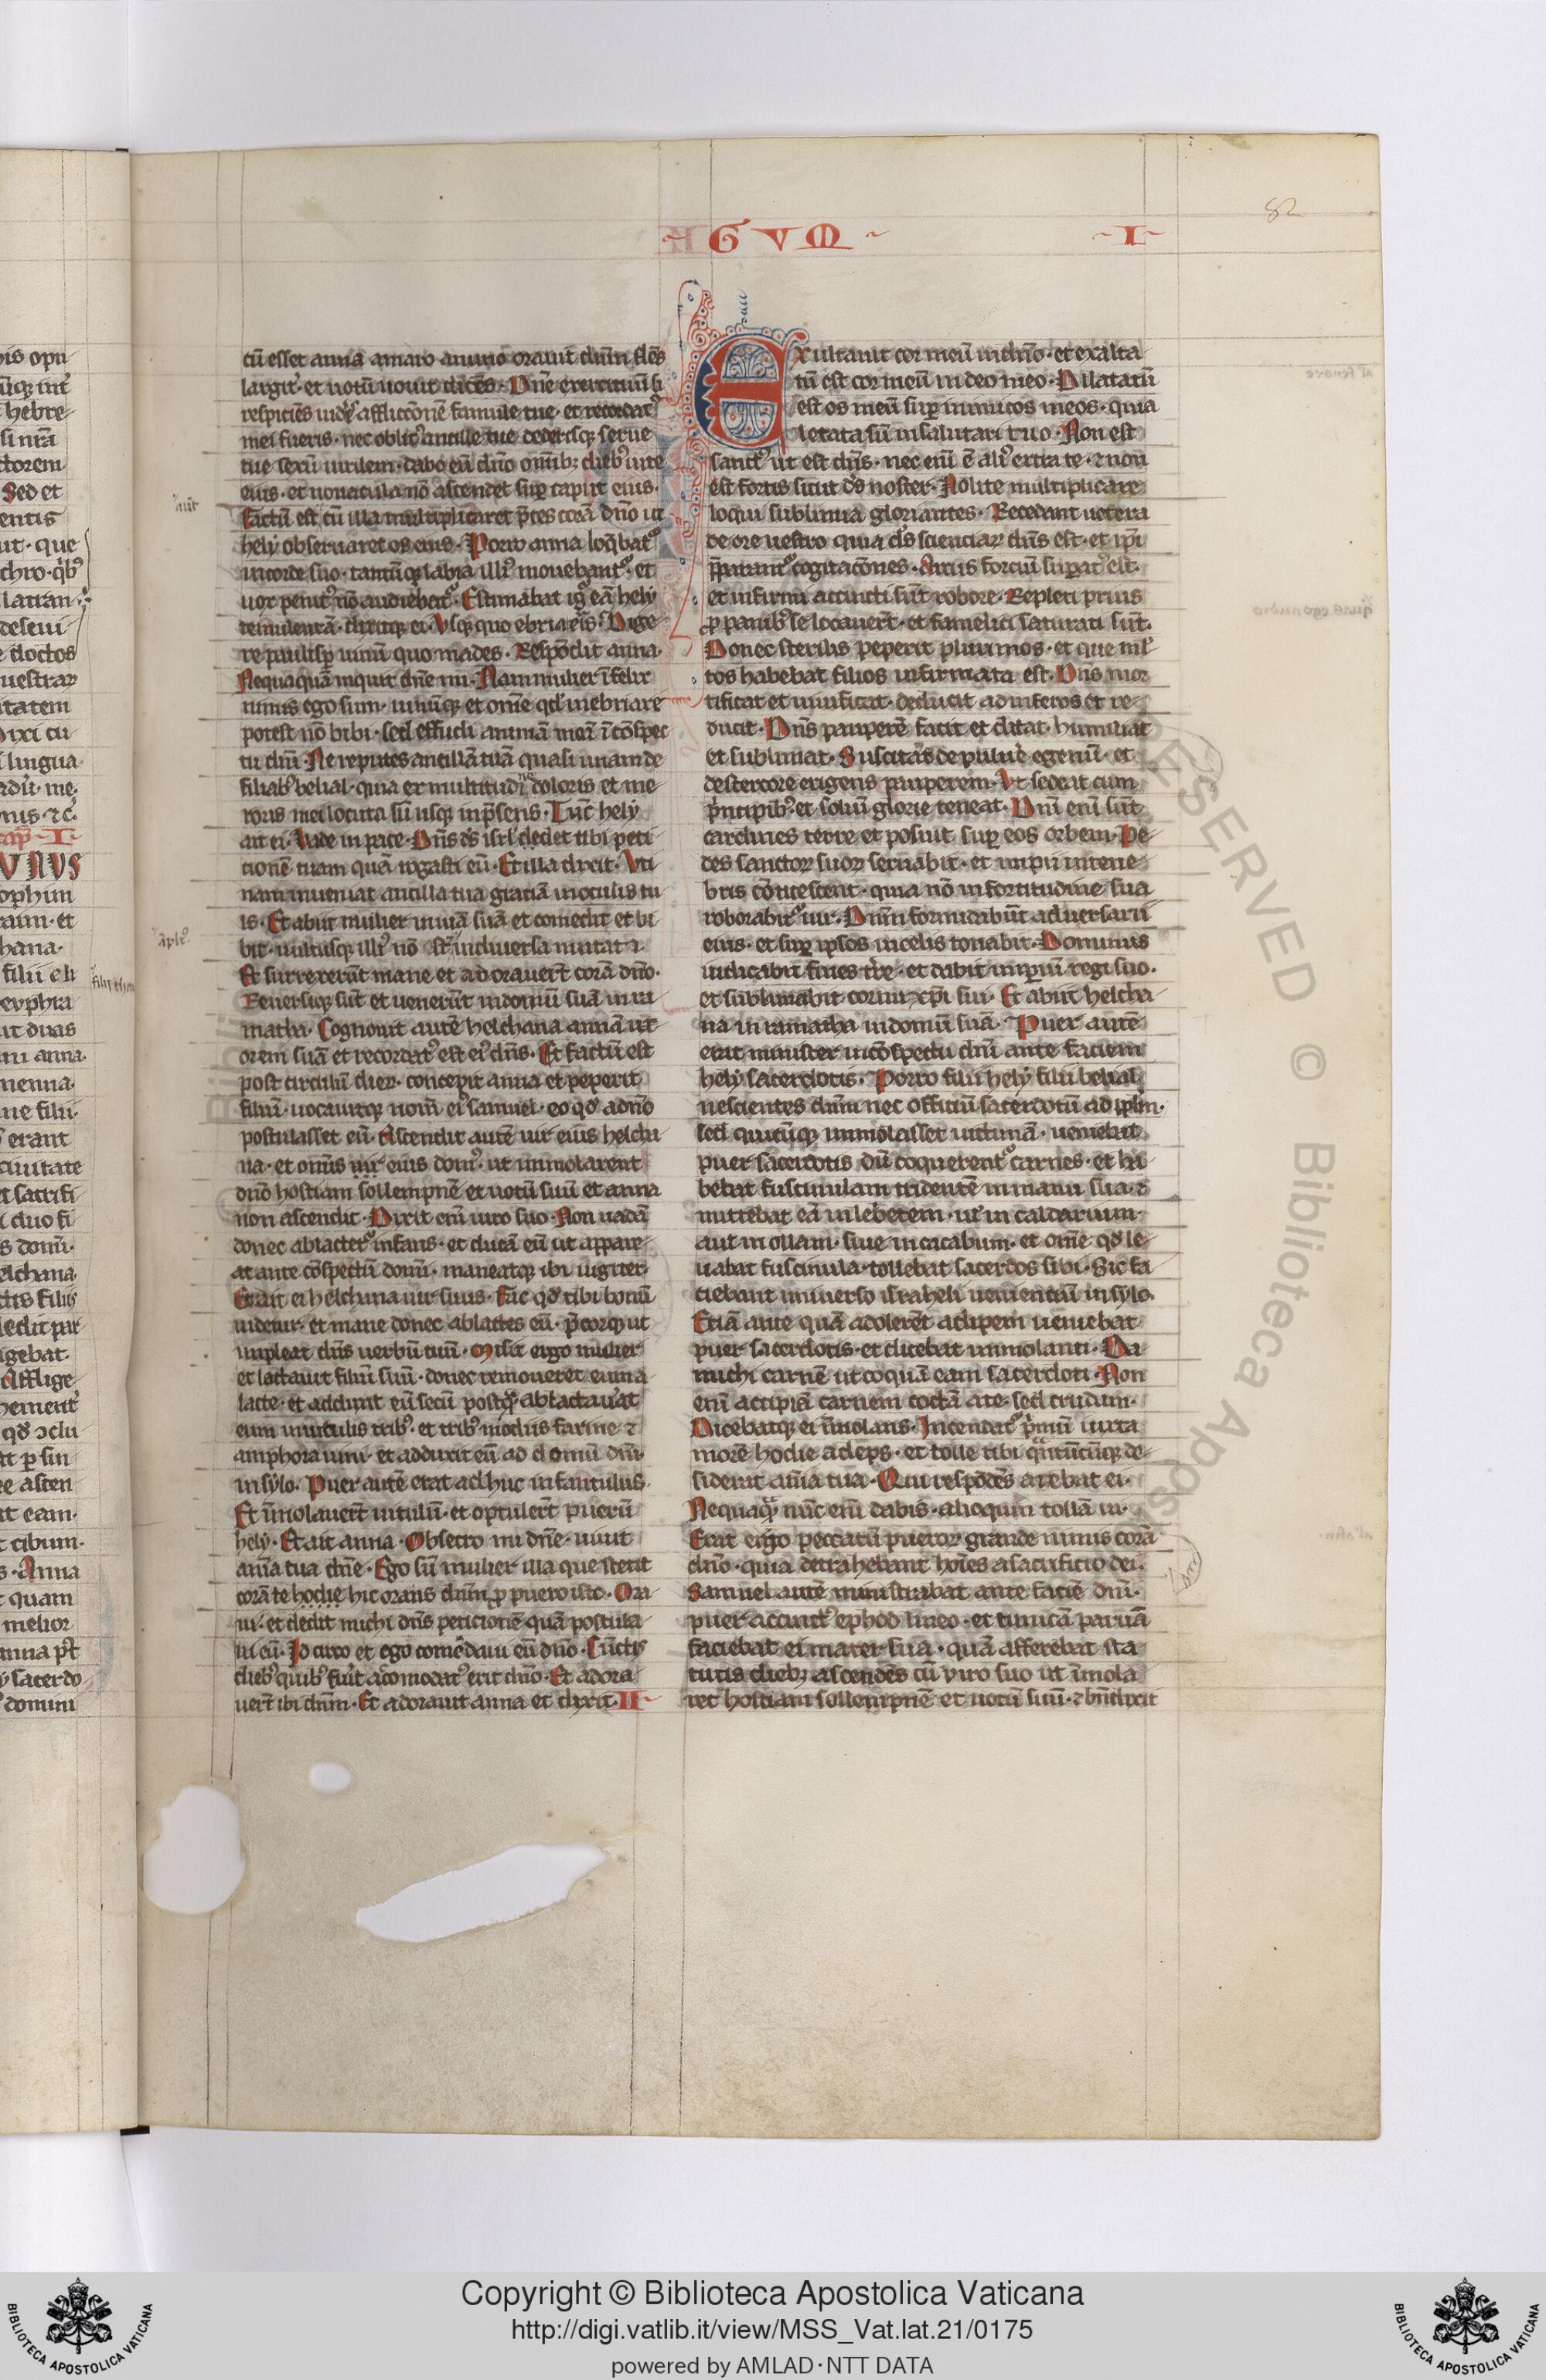 82
GVM I
cū esset anna amaro animo orauit dn̄m flēs
largit᷑· et uotū uouit dicēs· Dn̄e exercituū si
respiciēs uid᷑is afflictōnē famule tue· et recordat᷒
mei fueris· nec oblit᷒ ancille tue dederisqꝫ serue
tue sexū uirilem· dabo eū dn̄o om̄ibꝫ dieb᷒ uite
eius· et nouacula nō ascendet sup̱ caput eius·
Factū est cū illa multiplicaret p̄ces corā dn̄o ut
hely obseruaret os eius· Porro anna loq̄bat᷑
in corde suo· tantūqꝫ labia illi᷒ mouebant᷑· et
uox penit᷒ nō audiebat᷑· Estimabat ig᷑ eā hely
temulentā· dixitqꝫ ei· Vsqꝫ quo ebria eris· Dige
re paulisp̱ uinū quo mades· Respōdit anna·
Nequaquā inquit dn̄e mi· Nam mulier īfelix
nimis ego sum· uinūqꝫ et om̄e qd̄ inebriare
potest nō bibi· sed effudi animā meā ī cōspec
tu dn̄i· Ne reputes ancillā tuā quasi unam de
filiab᷒ belial· quia ex multitudine doloris et me
roris mei locuta sū usqꝫ in p̄sens· Tūc hely
ait ei· Vade in pace· Dn̄s d̄s isrl̄ dedet tibi peti
cionē tuam quā rogasti eū· Et illa dixit· Vti
nam inueniat ancilla tua gratiā in oculis tu
is· Et abiit mulier in uiā suā et comedit et bi
bit· uultusqꝫ illi᷒ nō st᷑ in diuersa mutati·
Et surrexerūt mane et adorauer̄t corā dn̄o·
Reuersiqꝫ sūt et uenerūt in domū suā in ra
matha· Cognouit autē helchana annā ux
orem suā et recordat᷒ est ei᷒ dn̄s· Et factū est
post circulū dieꝝ· concepit anna et peperit
filiū· uocauitqꝫ nom̄ ei᷒ samuel· eo qd̄ a dn̄o
postulasset eū· Ascendit autē uir eius helcha
na· et omīs uir eius dom᷒· ut immolarent
dn̄o hostiam sollempnē et uotū suū et anna
non ascendit· Dixit enī uiro suo· Non uadā
donec ablactet᷑ infans· et ducā eū ut appare
at ante cōspectū domī· maneatqꝫ ibi iugiter·
Et ait ei helchana uir suus· Fac qd̄ tibi bonū
uidetur· et mane donec ablactes eū· p̄corqꝫ ut
impleat dn̄s uerbū tuū· Māsit ergo mulier
et lactauit filiū suū· donec remoueret eum a
lacte· et adduxit eū secū postq̄ ablactau᷑at
eum in uitulis trib᷒· et trib᷒ modiis farine ⁊
amphora uini· et adduxit eū ad domū dn̄i·
in sylo· Puer autē erat adhuc infantulus·
Et īmolauer̄t uitulū· et optuler̄t puerū
hely· Et ait anna· Obsecro mi dn̄e· uiuit
an̄ia tua dn̄e· Ego sū mulier illa que stetit
corā te hodie hic orans dn̄m ꝓ puero isto· Ora
ui· et dedit michi dn̄s peticionē quā postula
ui eū· Idcirco et ego comēdaui eū dn̄o· Cūctis
dieb᷒ quib᷒ fuit acomodat᷒ erit dn̄o· Et adora
uer̄t ibi dn̄m· Et adorauit anna et dixit· II
Exultauit cor meū in dn̄o· et exalta
tū est cor meū in deo meo· Dilatatū
est os meū sup̱ inimicos meos· quia
letata sū in salutari tuo· Non est
sanct᷒ ut est dn̄s· nec enī ē ali᷒ extra te· ⁊ non
est fortis sicut d̄s noster· Nolite multiplicare
loqui sublimia gloriantes· Recedant uetera
de ore uestro quia d̄s scienciaꝝ dn̄s est· et ip̄i
p̄parant᷑ cogitacōnes· Arcus forciū sup̱at᷒ est·
et infirmi accincti sūt robore· Repleti prius
ꝓ panib᷒ se locauer̄t· et famelici saturati sūt·
Donec sterilis peperit plurimos· et que ml᷑
tos habebat filios infirmata est· Dn̄s mor
tificat et uiuificat· deducit ad inferos et re
ducit· Dn̄s pauperē facit et ditat· humiliat
et subliuiat· Suscitās de puluere egenū· et
de stercore erigens pauperem· Vt sedeat cum
p᷑ncipib᷒· et soliū glorie teneat· Dn̄i enī sūt
cardines terre et posuit sup̱ eos orbem· Pe
des sanctoꝝ suoꝝ seruabit· et impii in tene
bris cōticescent· quia nō in fortitudine sua
roborabit᷑ uir· Dn̄m formidabūt aduersarii
eius· et sup̱ ipsos in celis tonabit· Dominus
iudicabit fines t᷑re· et dabit imp̱iū regi suo·
et sublimabit cornu xp̄i sui· Et abiit helcha
na in ramatha in domū suā· Puer autē
erat minister in cōspectu dn̄i ante faciem
hely sacerdotis· Porro filii hely filii belial
nescientes dn̄m nec officiū sacerdotū ad ip̄lm·
sed quicūqꝫ immolasset uictimā· ueniebat
puer sacerdotis dū coquerent᷑ carnes· et ha
bebat fuscinulam tridentē in manu sua· ⁊
mittebat eā in lebetem· ut in caldarium·
aut in ollam· siue in cacabum· et om̄e qd̄ le
uabat fuscinula· tollebat sacerdos sibi· Sic fa
ciebant uniuerso israheli uenienciū in sylo·
Etiā ante quā adolerēt adipem ueniebat
puer sacerdotis· et dicebat immolanti· Da
michi carnē ut coquā eam sacerdoti· Non
enī accipiā carnem coctā a te· sed crudam·
Dicebatqꝫ ei īmolans· Incendat᷑ p᷑mū iuxta
morē hodie adeps· et tolle tibi q̄ntūcūqꝫ de
siderat an̄ia tua· Qui respōdēs aiebat ei·
Nequaq̄ nūc enī dabis· alioquin tollā ui·
Erat ergo peccatū pueroꝝ grande nimis corā
dn̄o· quia detrahebant hoīes a sacrificio dei·
Samuel autē ministrabat ante faciē dn̄i·
puer accinct᷒ ephod lineo· et tunicā paruā
faciebat ei mater sua· quā afferebat sta
tutis diebꝫ ascendēs cū uiro suo ut īmola
ret hostiam sollempnē et uotū suū· ⁊ bn̄dixit
Copyright © Biblioteca Apostolica Vaticana
http://digi.vatlib.it/view/MSS_Vat.lat.21/0175
powered by AMLAD·NTT DATA
BIBLIOTECA APOSTOLICA VATICANA
BIBLIOTECA APOSTOLICA VATICANA